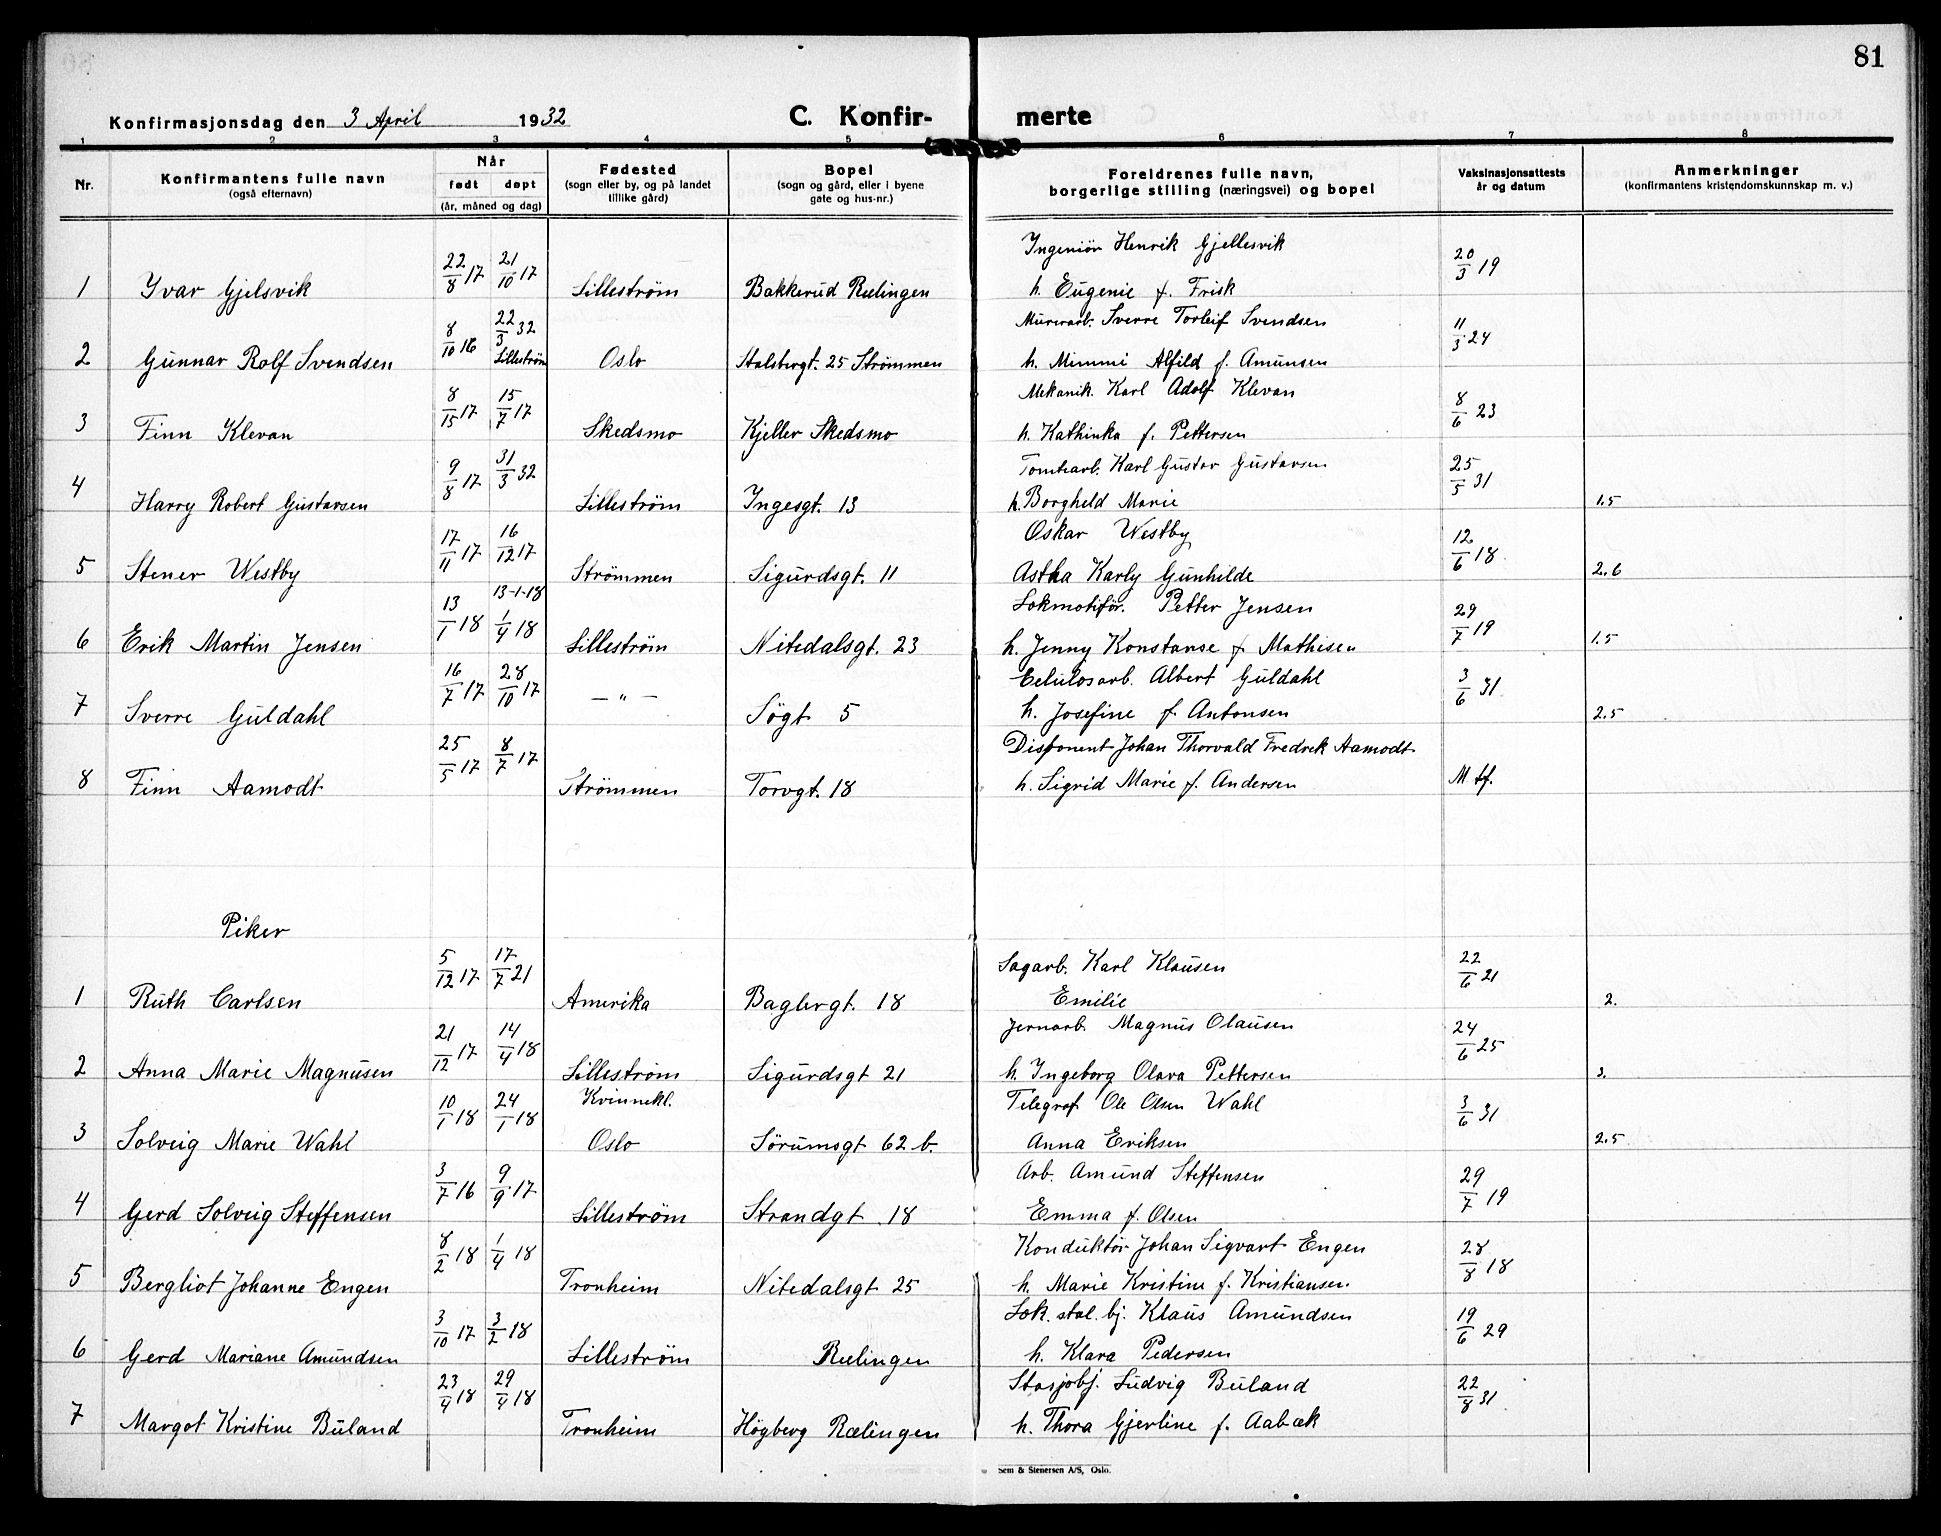 81
Konfirmasjonsdag den 3 April 1932 C. Konfirmerte
1 2 3 4 5 6 7 8
Nr. Konfirmantens fulle navn (også efternavn) Når født døpt (år, måned og dag) Fødested (sogn eller by, og på landet tillike gård) Bopel (sogn og gård, eller i byene gate og hus-nr.) Foreldrenes fulle navn, borgerlige stilling (næringsvei) og bopel Vaksinasjonsattests år og datum Anmerkninger (konfirmantens kristendomskunnskap m. v.)
Ingeniør Henrik Gjellesvik
1 Yvar Gjelsvik 22/8 17 21/10 17 Lilleström Bakkerud Rælingen h. Eugenie f. Frisk 20/3 19
Murerarb. Sverre Torleif Svendsen
2 Gunnar Rolf Svendsen 8/10 16 22/3 32 Lilleström Oslo Stalsbergt. 25 Strømmen h. Mimmi Alfild f. Amunsen 11/3 24
Mekanik. Karl Adolf Klevan
3 Finn Klevan 8/15 17 15/7 17 Skedsmo Kjeller Skedsmo h. Kathinka f. Pettersen 8/6 23
Tomtearb. Karl Gustav Gustavsen
4 Harry Robert Gustavsen 9/8 17 31/3 32 Lilleström Ingesgt. 13 h. Borgheld Marie 25/5 31 1.5
Oskar Westby
5 Stener Westby 17/11 17 16/12 17 Strømmen Sigurdsgt. 11 Astha Karly Gunhilde 12/6 18 2.6
13-1-18 Lokmotifør. Petter Jensen
6 Erik Martin Jensen 13/1 18 1/4 18 Lilleström Nitedalsgt. 23 h. Jenny Konstanse f. Mathisen 29/7 19 1.5
Celulosarb. Albert Guldahl
7 Sverre Guldahl 16/7 17 28/10 17 — " — Søgt 5 h. Josefine f. Antonsen 3/6 31 2.5
Disponent Johan Thorvald Fredrek Aamodt
8 Finn Aamodt 25/5 17 8/7 17 Strømmen Torvgt. 18 h. Sigrid Marie f. Andersen M tf.
Piker
Sagarb. Karl Klausen
1 Ruth Carlsen 5/12 17 17/7 21 Amerika Baglergt. 18 Emilie 22/6 21 2.
Jernarb. Magnus Olausen
2 Anna Marie Magnusen 21/12 17 14/4 18 Lilleström Sigurdsgt 21 h. Ingeborg Olava Pettersen 24/6 25 3.
Kvinnekl. Telegraf Ole Olsen Wahl
3 Solveig Marie Wahl 10/1 18 24/1 18 Oslo Sørumsgt 62 b. Anna Eriksen 3/6 31 2.5
Arb. Amund Steffensen
4 Gerd Solveig Steffensen 3/7 16 9/9 17 Lilleström Strandgt 18 Emma f. Olsen 29/7 19
Konduktør Johan Sigvart Engen
5 Bergliot Johanne Engen 8/2 18 1/4 18 Tronheim Nitedalsgt 25 h. Marie Kristine f. Kristiansen. 28/8 18
Lok. stal. bj. Klaus Amundsen
6 Gerd Mariane Amundsen 3/10 17 3/2 18 Lilleström Rælingen h. Klara Pedersen 19/6 29
Stasjobj. Ludvig Buland
7 Margot Kristine Buland 23/4 18 29/4 18 Tronheim Høgberg Rælingen h. Thora Gjertine f. Aabæk 22/8 31
Sem & Stenersen A/S, Oslo.